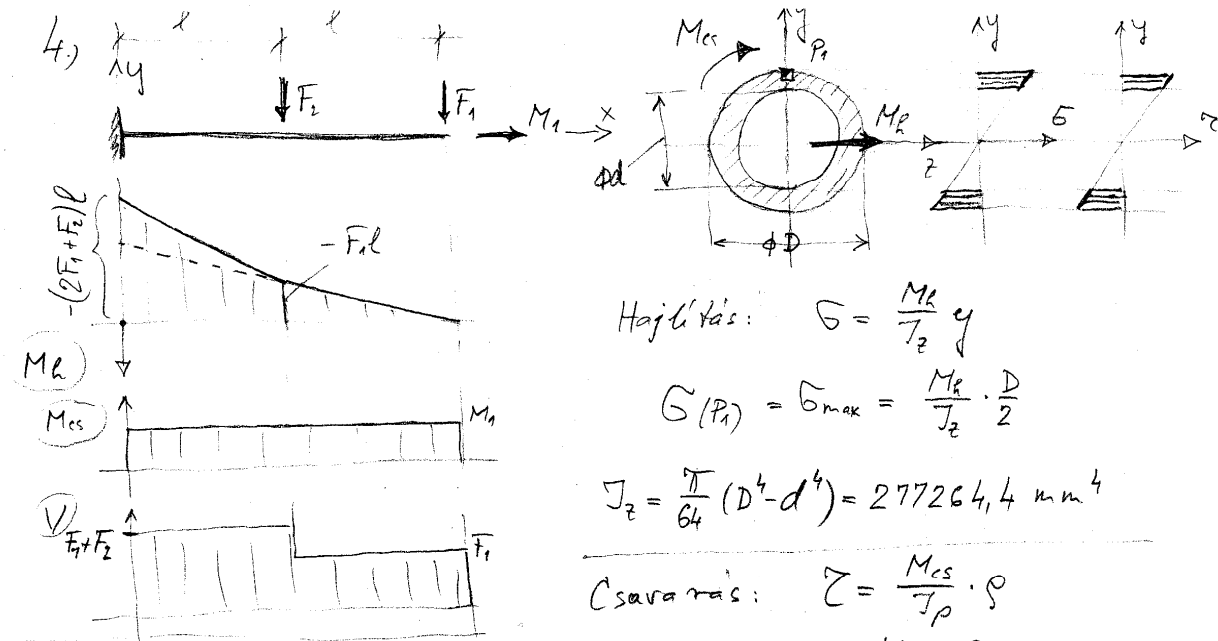 4.)
l l
y
F₂
F₁
M₁
x
-(2F₁+F₂)l
-F₁l
Mh
Mcs
M₁
V
F₁+F₂
F₁
Mcs
y
P₁
Φd
Mh
z
ΦD
y
σ
y
τ
Hajlítás: σ = Mh/Jz y
σ(P₁) = σmax = Mh/Jz · D/2
Jz = π/64 (D⁴-d⁴) = 277264,4 mm⁴
Csavarás: τ = Mcs/Jρ · ρ